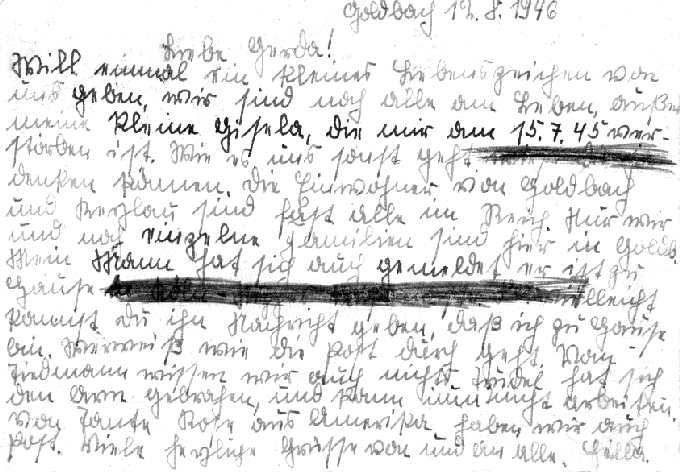 Goldbach 12.8.1946
Liebe Gerda!
Will einmal ein kleines Lebenszeichen von
uns geben, wir sind noch alle am Leben, außer
meine kleine Gisela, die mir am 15.7.45 ver-
storben ist. Wie es uns sonst geht
denken können. Die Einwohner von Goldbach
und sind fast alle im Reich. Nur wir
und noch einzelne Familien sind hier in Goldb.
Mein Mann hat sich auch gemeldet er ist zu
Hause vielleicht
kannst du ihn Nachricht geben, daß ich zu Hause
bin. Wer weiß wie die Post durch geht. Von
Tiedmann wissen wir auch nichts. hat sich
den Arm gebrochen, und kann nun nicht arbeiten.
Von Tante Rose aus Amerika haben wir auch
Post. Viele herzliche Grüsse von und an alle. Hella.